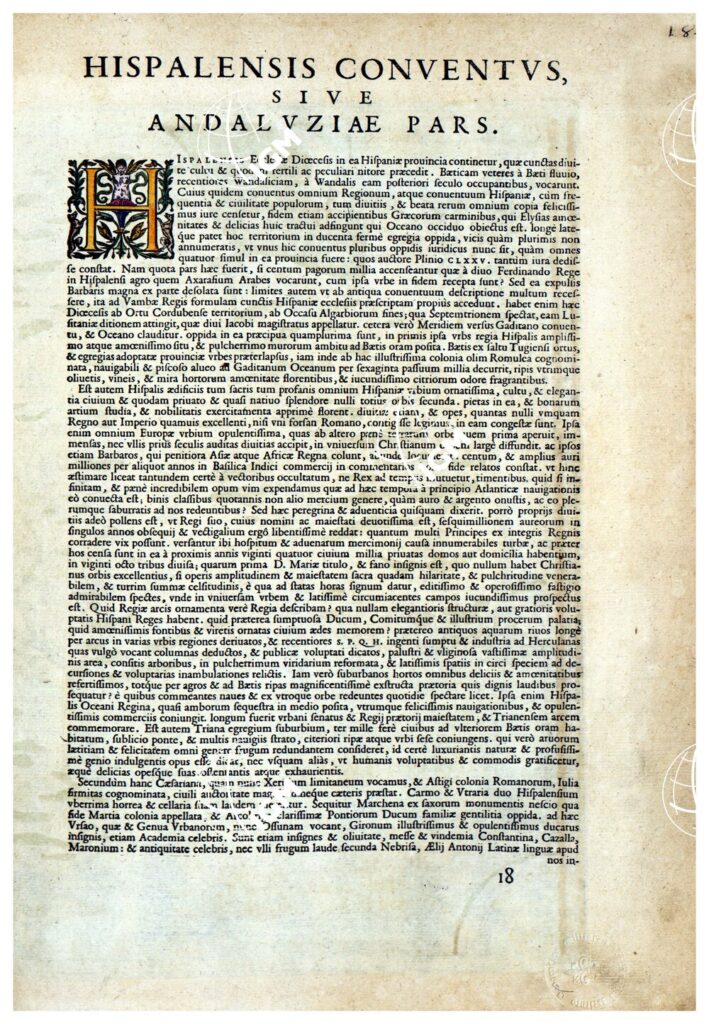 18
HISPALENSIS CONVENTVS,
SIVE
ANDALVZIAE PARS.
HISPALENSIS Ecclesiæ Diœcesis in ea Hispaniæ prouincia continetur, quæ cunctas diui-
te cultu & quodam fertili ac peculiari nitore præcedit. Bæticam veteres à Bæti fluuio,
recentiores Wandaliciam, à Wandalis eam posteriori seculo occupantibus, vocarunt.
Cuius quidem conuentus omnium Regionum, atque conuentuum Hispaniæ, cùm fre-
quentia & ciuilitate populorum, tum diuitiis, & beata rerum omnium copia felicissi-
mus iure censetur, fidem etiam accipientibus Græcorum carminibus, qui Elysias amœ-
nitates & delicias huic tractui adfingunt qui Oceano occiduo obiectus est. longè late-
que patet hoc territorium in ducenta fermè egregia oppida, vicis quàm plurimis non
annumeratis, vt vnus hic conuentus pluribus oppidis iuridicus nunc sit, quàm omnes
quatuor simul in ea prouincia fuere: quos auctore Plinio CLXXV. tantum iura dedis-
se constat. Nam quota pars hæc fuerit, si centum pagorum millia accenseantur quæ à diuo Ferdinando Rege
in Hispalensi agro quem Axarafium Arabes vocarunt, cum ipsa vrbe in fidem recepta sunt? Sed ea expulsis
Barbaris magna ex parte desolata sunt: limites autem vt ab antiqua conuentuum descriptione multum reces-
sere, ita ad Vambæ Regis formulam cunctis Hispaniæ ecclesiis præscriptam propiùs accedunt. habet enim hæc
Diœcesis ab Ortu Cordubense territorium, ab Occasu Algarbiorum fines; qua Septemtrionem spectat, eam Lu-
sitaniæ ditionem attingit, quæ diui Iacobi magistratus appellatur. cetera verò Meridiem versus Gaditano conuen-
tu, & Oceano clauditur. oppida in ea præcipua quamplurima sunt, in primis ipsa vrbs regia Hispalis amplissi-
mo atque amœnissimo situ, & pulcherrimo murorum ambitu ad Bætis oram posita. Bætis è saltu Tugiensi ortus,
& egregias adoptatæ prouinciæ vrbes præterlapsus, iam inde ab hac illustrissima colonia olim Romulea cognomi-
nata, nauigabili & piscoso alueo ad Gaditanum Oceanum per sexaginta passuum millia decurrit, ripis vtrimque
oliuetis, vineis, & mira hortorum amœnitate florentibus, & iucundissimo citriorum odore fragrantibus.
Est autem Hispalis ædificiis tum sacris tum profanis omnium Hispaniæ vrbium ornatissima, cultu, & elegan-
tia ciuium & quodam priuato & quasi natiuo splendore nulli totius orbis secunda. pietas in ea, & bonarum
artium studia, & nobilitatis exercitamenta apprimè florent. diuitias etiam, & opes, quantas nulli vmquam
Regno aut Imperio quamuis excellenti, nisi vni forsan Romano, contigisse legimus, in eam congestæ sunt. Ipsa
enim omnium Europæ vrbium opulentissima, quas ab altero penè terrarum orbe quem prima aperuit, im-
mensas, nec vllis priùs seculis auditas diuitias accipit, in vniuersum Christianum orbem largè diffundit. ac ipsos
etiam Barbaros, qui penitiora Asiæ atque Africæ Regna colunt, abunde locupletat. centum, & amplius auri
milliones per aliquot annos in Basilica Indici commercij in commentarios fide relatos constat. vt hinc
æstimare liceat tantundem certè à vectoribus occultatum, ne Rex ad tempus mutuetur, timentibus. quid si in-
finitam, & pænè incredibilem opum vim expendamus quæ ad hæc tempora à principio Atlanticæ nauigationis
eò conuecta est; binis classibus quotannis non alio mercium genere, quàm auro & argento onustis, ac eo ple-
rumque saburratis ad nos redeuntibus? Sed hæc peregrina & aduenticia quisquam dixerit. porrò propriis diui-
tiis adeò pollens est, vt Regi suo, cuius nomini ac maiestati deuotissima est, sesquimillionem aureorum in
singulos annos obsequij & vectigalium ergò libentissimè reddat: quantum multi Principes ex integris Regnis
corradere vix possunt. versantur ibi hospitum & aduenatum mercimonij causâ innumerabiles turbæ, ac præter
hos censa sunt in ea à proximis annis viginti quatuor ciuium millia priuatas domos aut domicilia habentium,
in viginti octo tribus diuisa; quarum prima D. Mariæ titulo, & fano insignis est, quo nullum habet Christia-
nus orbis excellentius, si operis amplitudinem & maiestatem sacra quadam hilaritate, & pulchritudine venera-
bilem, & turrim summæ celsitudinis, è qua ad statas horas signum datur, editissimo & operosissimo fastigio
admirabilem spectes, vnde in vniuersam vrbem & latissimè circumiacentes campos iucundissimus prospectus
est. Quid Regiæ arcis ornamenta verè Regia describam? qua nullam elegantioris structuræ, aut gratioris volu-
ptatis Hispani Reges habent. quid præterea sumptuosa Ducum, Comitumque & illustrium procerum palatia,
quid amœnissimis fontibus & viretis ornatas ciuium ædes memorem? prætereo antiquos aquarum riuos longè
per arcus in varias vrbis regiones deriuatos, & recentiores S. P. Q. H. ingenti sumptu & industria ad Herculanas
quas vulgò vocant columnas deductos, & publicæ voluptati dicatos, palustri & vliginosa vastissimæ amplitudi-
nis area, consitis arboribus, in pulcherrimum viridarium reformata, & latissimis spatiis in circi speciem ad de-
cursiones & voluptarias inambulationes relictis. Iam verò suburbanos hortos omnibus deliciis & amœnitatibus
refertissimos, totque per agros & ad Bætis ripas magnificentissimè exstructa prætoria quis dignis laudibus pro-
sequatur? è quibus commeantes naues & ex vtroque orbe redeuntes quotidie spectare licet. Ipsa enim Hispa-
lis Oceani Regina, quasi amborum sequestra in medio posita, vtrumque felicissimis nauigationibus, & opulen-
tissimis commerciis coniungit. longum fuerit vrbani senatus & Regij prætorij maiestatem, & Trianensem arcem
commemorare. Est autem Triana egregium suburbium, ter mille ferè ciuibus ad vlteriorem Bætis oram ha-
bitatum, sublicio ponte, & multis nauigiis strato, citeriori ripæ atque vrbi sese coniungens. qui verò aruorum
lætitiam & felicitatem omni genere frugum redundantem consideret, id certè luxuriantis naturæ & profusissi-
mè genio indulgentis opus esse dicat, nec vsquam aliàs, vt humanis voluptatibus & commodis gratificetur,
æquè delicias opesque suas ostentantis atque exhaurientis.
Secundùm hanc Cæsariana, quam nunc Xerium limitaneum vocamus, & Astigi colonia Romanorum, Iulia
firmitas cognominata, ciuili auctoritate magnitudineque cæteris præstat. Carmo & Vtraria duo Hispalensium
vberrima horrea & cellaria suam laudem merentur. Sequitur Marchena ex saxorum monumentis nescio qua
fide Martia colonia appellata, & clarissimæ Pontiorum Ducum familiæ gentilitia oppida. ad hæc
Vrsao, quæ & Genua Vrbanorum, nunc Ossunam vocant, Gironum illustrissimus & opulentissimus ducatus
insignis, etiam Academia celebris. Sunt etiam insignes & oliuitate, messe & vindemia Constantina, Cazalla,
Maronium: & antiquitate celebris, nec vlli frugum laude secunda Nebrisa, Ælij Antonij Latinæ linguæ apud
nos in-
18